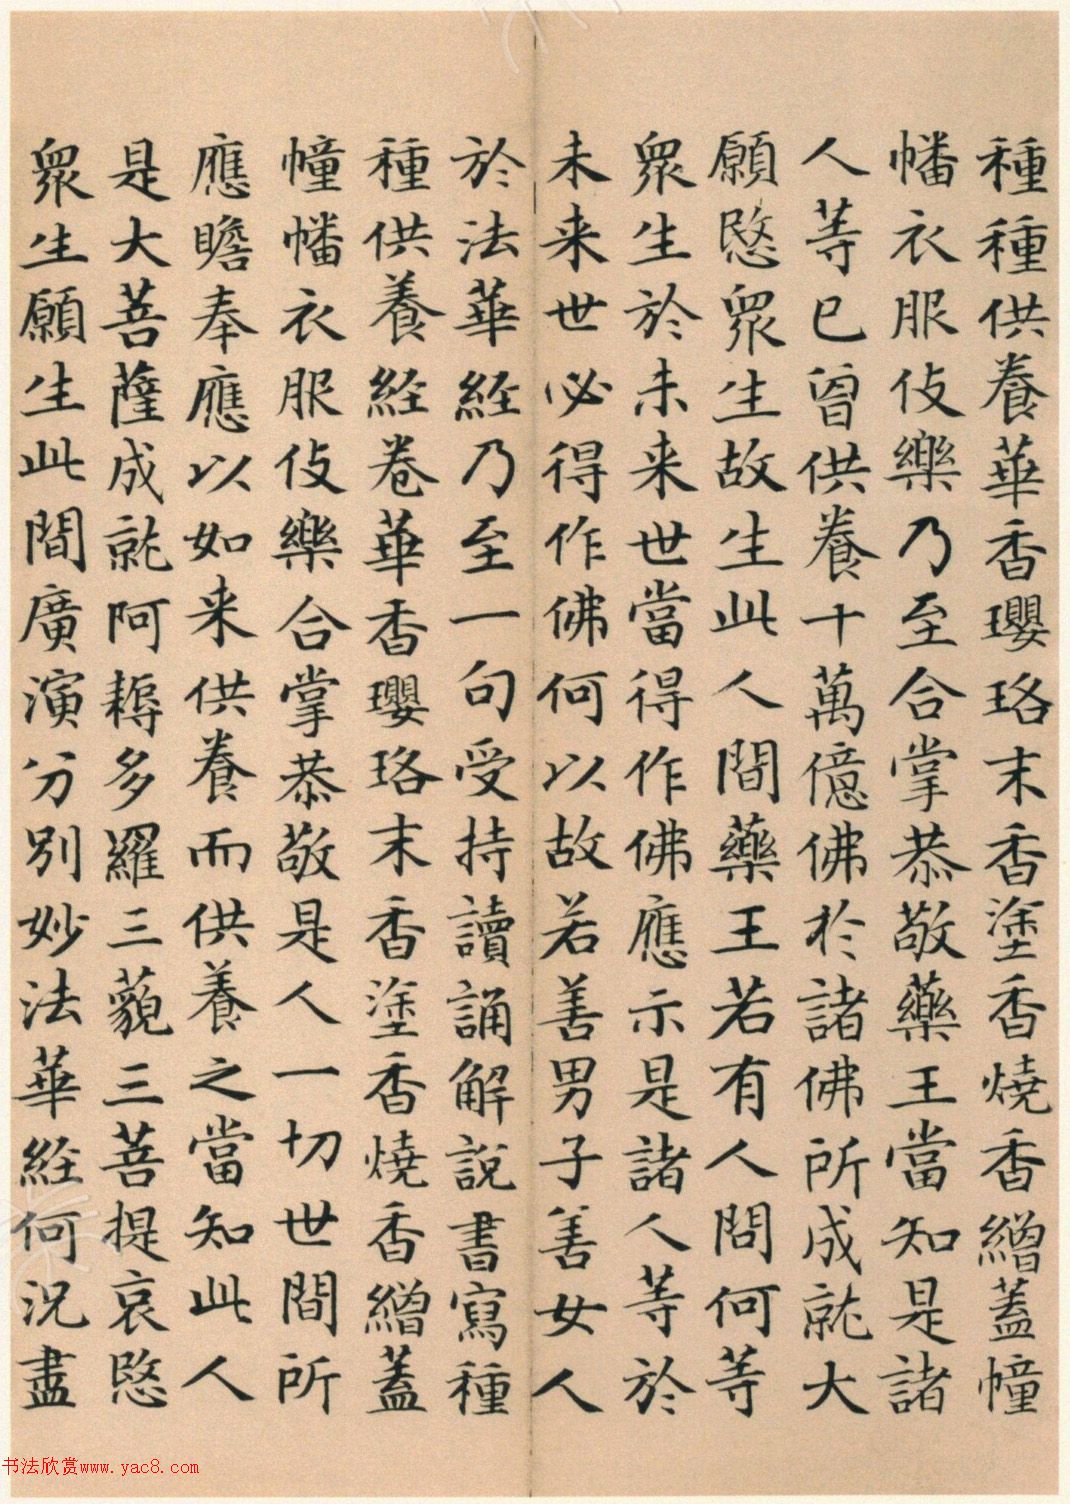 種種供養華香瓔珞末香塗香燒香繒蓋幢
幡衣服伎樂乃至合掌恭敬藥王當知是諸
人等已曾供養十萬億佛於諸佛所成就大
願愍眾生故生此人間藥王若有人問何等
眾生於未来世當得作佛應示是諸人等於
未来世必得作佛何以故若善男子善女人
於法華經乃至一句受持讀誦解說書寫種
種供養經卷華香瓔珞末香塗香燒香繒蓋
幢幡衣服伎樂合掌恭敬是人一切世間所
應瞻奉應以如来供養而供養之當知此人
是大菩薩成就阿耨多羅三藐三菩提哀愍
眾生願生此間廣演分別妙法華經何況盡
书法欣赏www.yac8.com